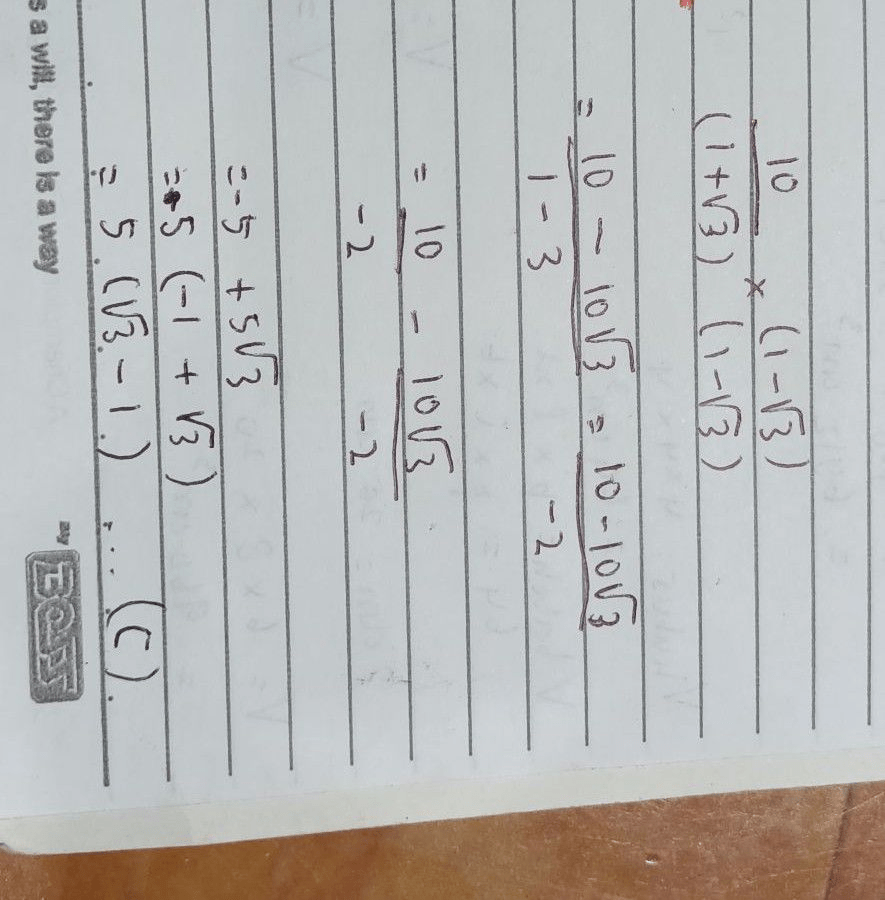 10 × (1-√3)
(1+√3) (1-√3)
= 10 - 10√3 = 10 - 10√3
1 - 3 -2
= 10 - 10√3
-2 -2
= -5 + 5√3
= 5 (-1 + √3)
= 5 (√3 - 1) ... (C).
s a will, there is a way
BY
BOSS